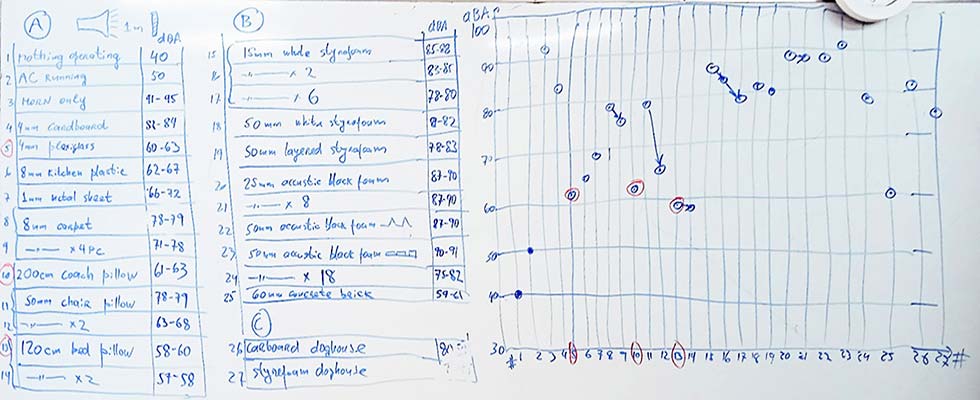 A 1m dBA
1 Nothing operating 40
2 AC Running 50
3 HORN only 91-95
4 4mm Cardboard 82-84
5 4mm plexiglass 60-63
6 8mm Kitchen plastic 62-67
7 1mm metal sheet 66-72
8 8mm carpet 78-79
9 -"- x4pc 71-78
10 200cm coach pillow 61-63
11 50mm chair pillow 78-79
12 -"- x2 63-68
13 120cm bed pillow 58-60
14 -"- x2 57-58
B dBA
15 15mm white styrofoam 85-88
16 -"- x 2 83-85
17 -"- x 6 78-80
18 50mm white styrofoam -82
19 50mm layered styrofoam 78-83
20 25mm acoustic black foam 87-90
21 -"- x 8 87-90
22 50mm acoustic black foam 87-90
23 50mm acoustic black foam 90-91
24 -"- x 18 75-82
25 60mm concrete brick 59-61
C
26 Carboard doghouse 80
27 Styrofoam doghouse
dBA
100
90
80
70
60
50
40
30
# 1 2 3 4 5 6 7 8 9 10 11 12 13 14 15 16 17 18 19 20 21 22 23 24 25 26 27 #